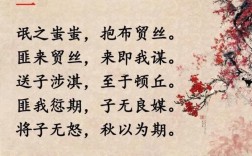 氓之蚩蚩，抱布贸丝。
匪来贸丝，来即我谋。
送子涉淇，至于顿丘。
匪我愆期，子无良媒。
将子无怒，秋以为期。